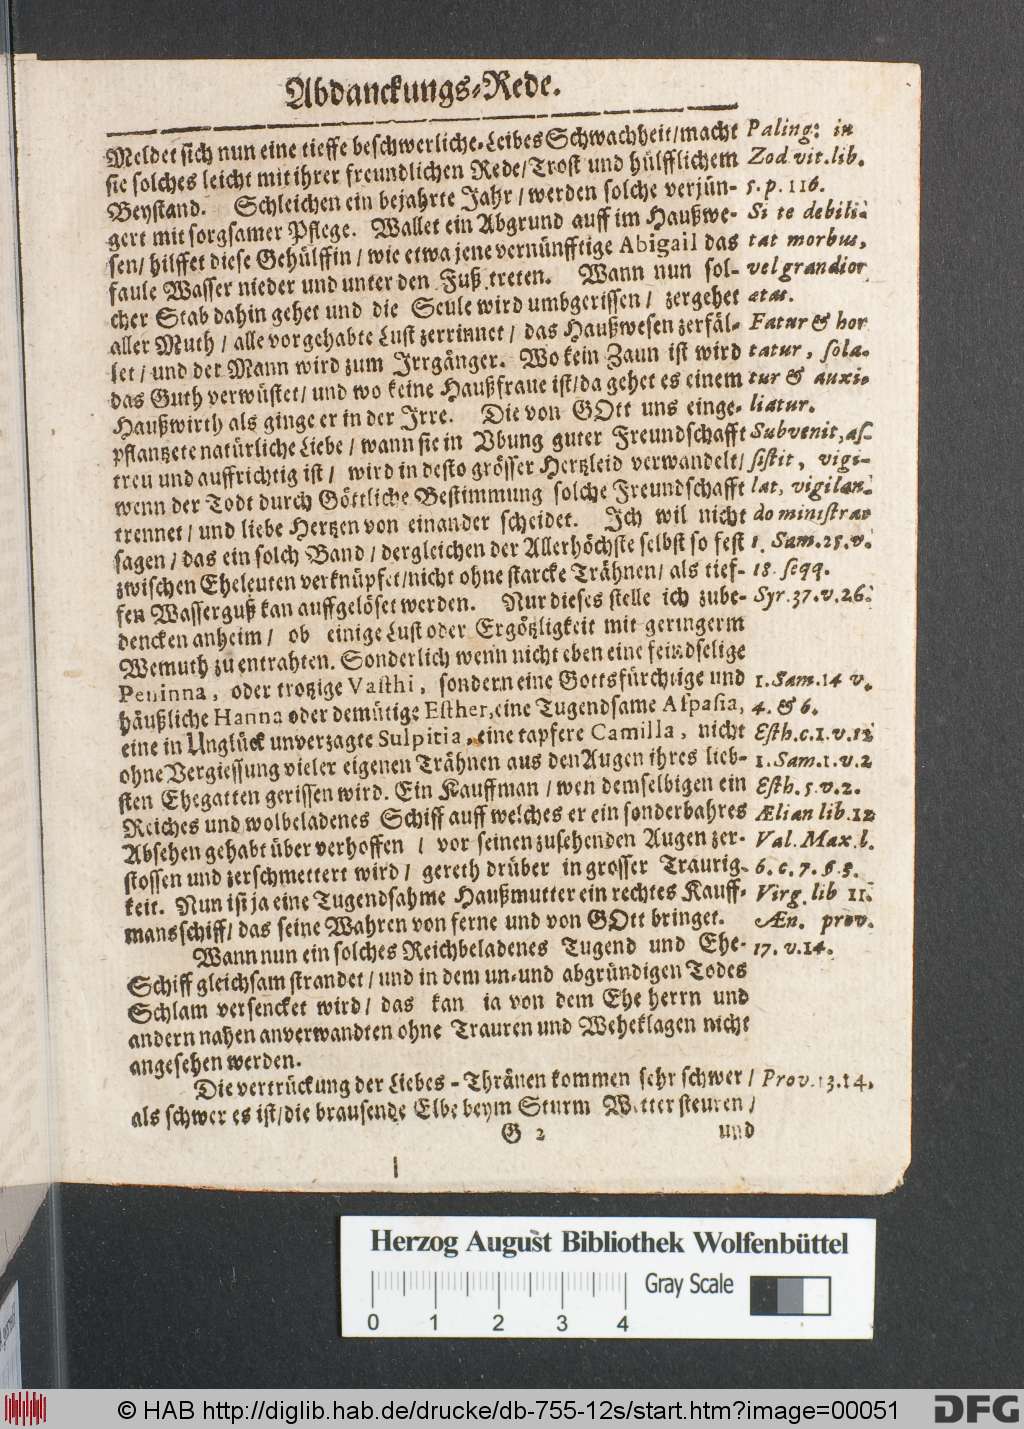 Abdanckungs-Rede.
Meldet sich nun eine tieffe beschwerliche-Leibes Schwachheit/macht
sie solches leicht mit ihrer freundlichen Rede/Trost und hülfflichem
Beystand. Schleichen ein bejahrte Jahr/werden solche verjün-
gert mit sorgsamer Pflege. Wallet ein Abgrund auff im Haußwe-
sen/hilffet diese Gehülffin/wie etwa jene vernünfftige Abigail das
faule Wasser nieder und unter den Fuß treten. Wann nun sol-
cher Stab dahin gehet und die Seule wird umbgerissen/ zergehet
aller Muth/alle vorgehabte Lust zerrinnet/das Haußwesen zerfäl-
let/und der Mann wird zum Irrgänger. Wo kein Zaun ist wird
das Guth verwüstet/und wo keine Haußfraue ist/da gehet es einem
Haußwirth als ginge er in der Irre. Die von GOtt uns einge-
pflantzete natürliche Liebe/wann sie in Ubung guter Freundschafft
treu und auffrichtig ist/ wird in desto grösser Hertzleid verwandelt/
wenn der Todt durch Göttliche Bestimmung solche Freundschafft
trennet/und liebe Hertzen von einander scheidet. Ich wil nicht
sagen/das ein solch Band/dergleichen der Allerhöchste selbst so fest
zwischen Eheleuten verknüpfet/nicht ohne starcke Trähnen/als tief-
fen Wasserguß kan auffgelöset werden. Nur dieses stelle ich zube-
dencken anheim/ ob einige Lust oder Ergötzligkeit mit geringerm
Wemuth zu entrahten. Sonderlich wenn nicht eben eine feindselige
Peninna, oder trotzige Vasthi, sondern eine Gottsfürchtige und
häußliche Hanna oder demütige Esther, eine Tugendsame Aspasia,
eine in Unglück unverzagte Sulpitia, eine tapfere Camilla, nicht
ohne Vergiessung vieler eigenen Trähnen aus den Augen ihres lieb-
sten Ehegatten gerissen wird. Ein Kauffman/wen demselbigen ein
Reiches und wolbeladenes Schiff auff welches er ein sonderbahres
Absehen gehabt über verhoffen / vor seinen zusehenden Augen zer-
stossen und zerschmettert wird/ gereth drüber in grosser Traurig-
keit. Nun ist ja eine Tugendsahme Haußmutter ein rechtes Kauff-
mansschiff/das seine Wahren von ferne und von GOtt bringet.
Wann nun ein solches Reichbeladenes Tugend und Ehe-
Schiff gleichsam strandet/und in dem un-und abgründigen Todes
Schlam versencket wird/das kan ja von dem Eheherrn und
andern nahen anverwandten ohne Trauren und Weheklagen nicht
angesehen werden.
Die vertrückung der Liebes-Thränen kommen sehr schwer/
als schwer es ist/die brausende Elbe beym Sturm Wetter steuren/
G 2 und
Paling: in
Zod vit. lib.
5. p. 116.
Si te debili-
tat morbus,
vel grandior
ætat.
Fatur & hor
tatur, sola-
tur & auxi-
liatur.
Subvenit, as-
sistit, vigi-
lat, vigilan-
do ministrat
1. Sam. 25. v.
18. seqq.
Syr. 37. v. 26.
1. Sam. 14 v.
4. & 6.
Esth. c. 1. v. 12
1. Sam. 1. v. 2
Esth. 5. v. 2.
Ælian lib. 12
Val. Max. l.
6. c. 7. §. 3.
Virg. lib 11.
Æn. prov.
17. v. 14.
Prov. 13. 14.
Herzog August Bibliothek Wolfenbüttel
Gray Scale
0 1 2 3 4
© HAB http://diglib.hab.de/drucke/db-755-12s/start.htm?image=00051
DFG